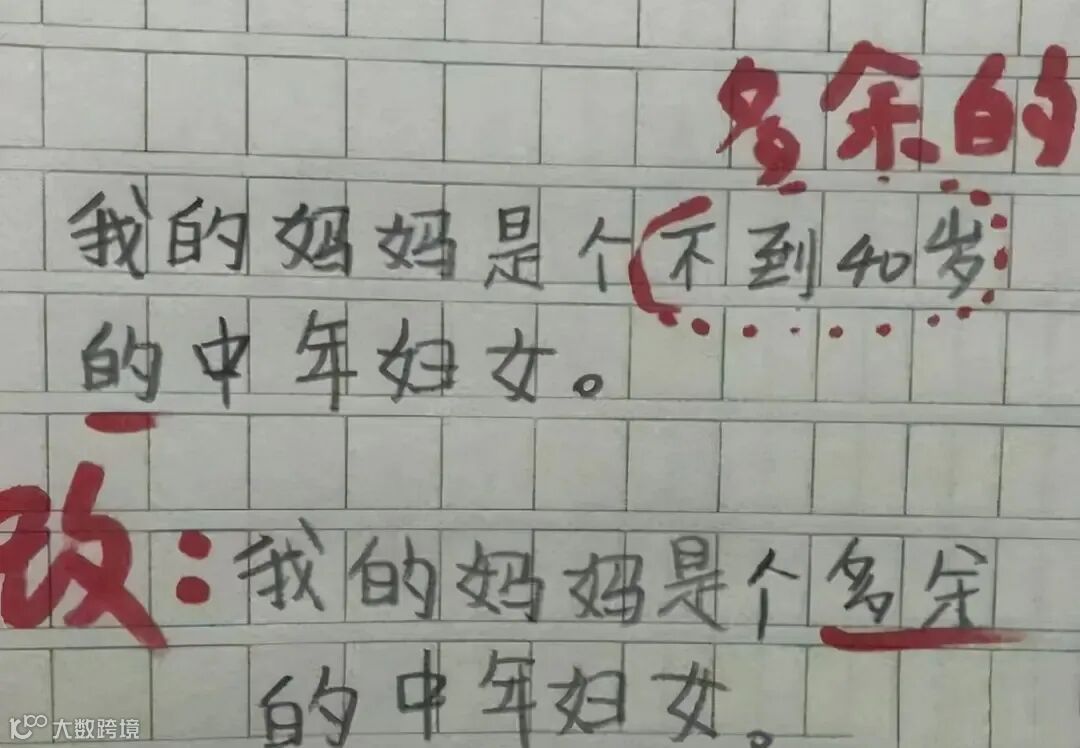 多余的
我的妈妈是个不到40岁
的中年妇女。
改：我的妈妈是个多余
的中年妇女。
大数跨境